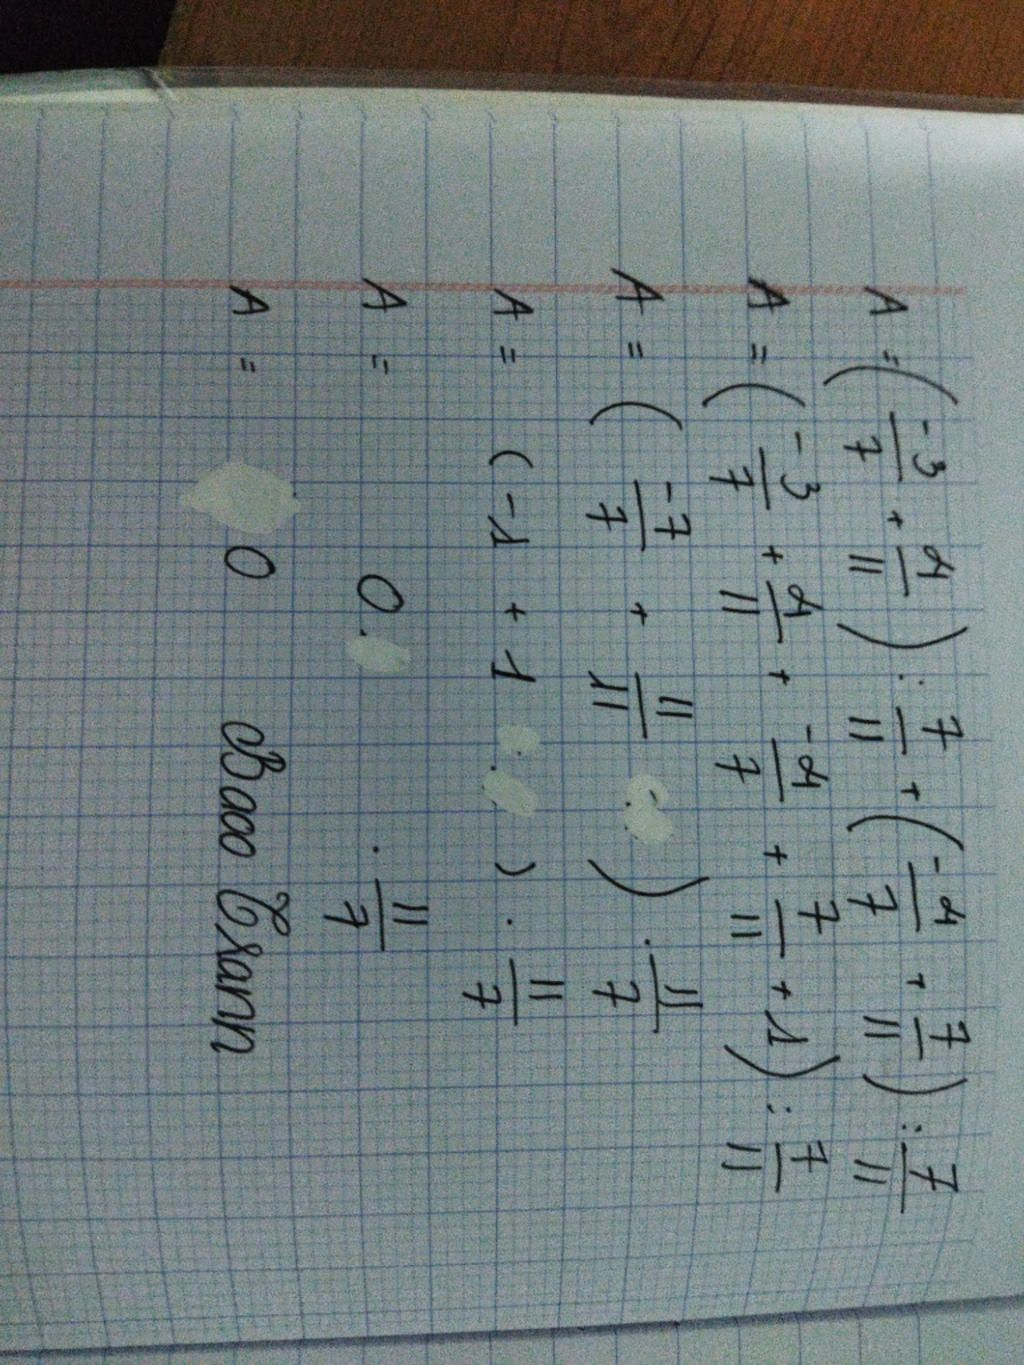 A = ( -3/7 + 4/11 ) : 7/11 + ( -4/7 + 7/11 ) : 7/11
A = ( -3/7 + 4/11 + -4/7 + 7/11 + 1 ) : 7/11
A = ( -7/7 + 11/11 ) . 11/7
A = ( -1 + 1 ) . 11/7
A = 0 . 11/7
A = 0